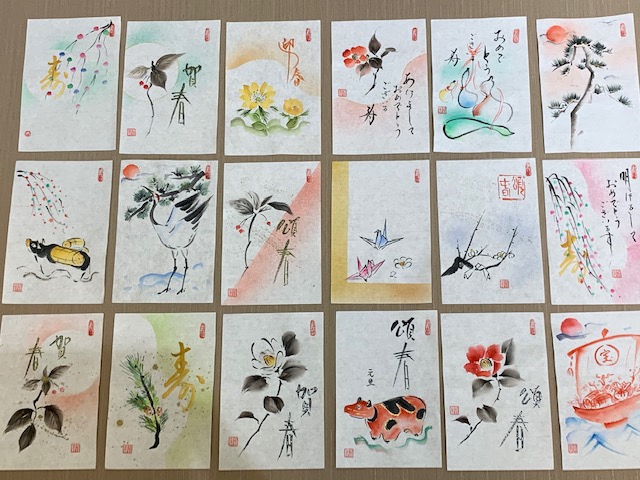 寿
賀
春
迎
春
あけまして
おめでとう
ございます
寿
おめで
とうご
ざいます
寿
頌
春
頌
春
明けまして
おめでとう
ございます
寿
賀
春
寿
賀
春
頌
春
元旦
頌
春
宝